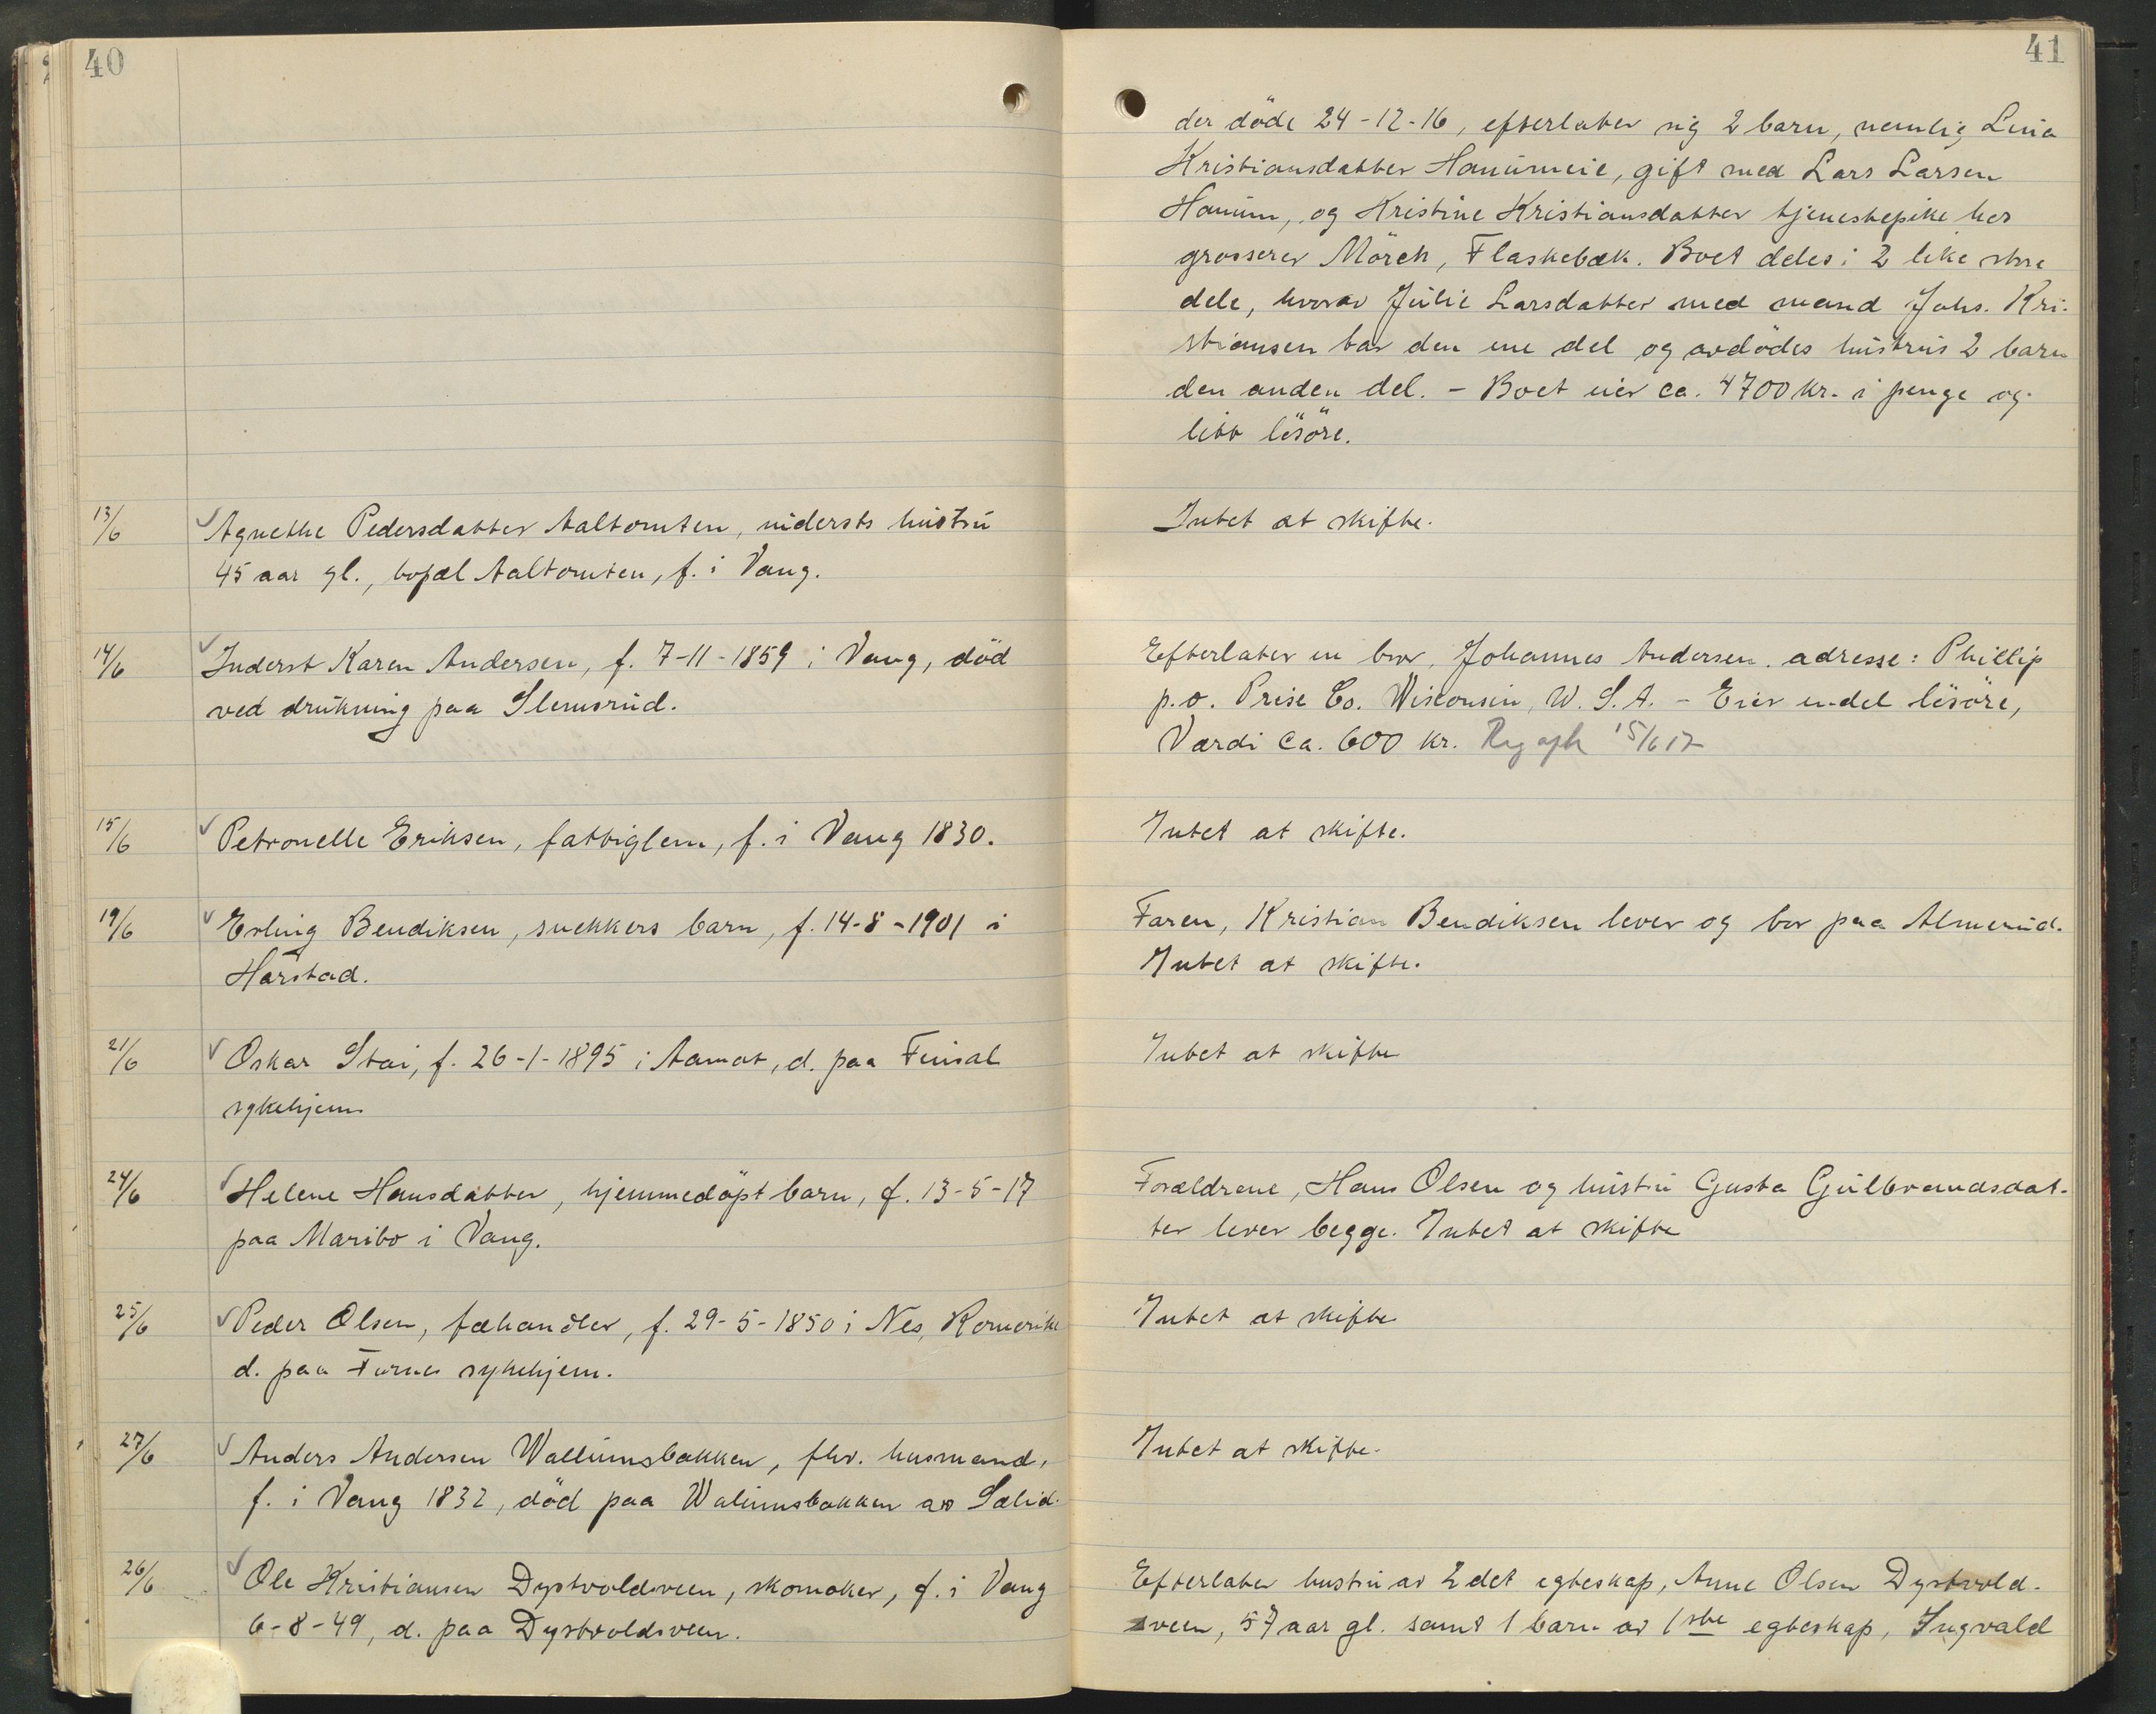 40
41
der döde 24-12-16, efterlater sig 2 barn, nemlig Lina
Kristiansdatter Hanumeie, gift med Lars Larsen
Hanum, og Kristine Kristiansdatter tjenestepike hos
grosserer Mörch, Flaskebæk. Boet deles i 2 like store
dele, hvorav Julie Larsdatter med mand Johs. Kri-
stiansen tar den ene del og avdödes hustrus 2 barn
den anden del. - Boet eier ca. 4700 kr. i penge og
litt lösöre.
13/6 Agnethe Pedersdatter Aaltomten, indersts hustru
45 aar gl., bopæl Aaltomten, f. i Vang.
Intet at skifte.
14/6 Inderst Karen Andersen, f. 7-11-1859 i Vang, död
ved drukning paa Slemsrud.
Efterlater en bror, Johannes Andersen. adresse: Phillip
p.o. Prise Co. Wisconsin, U. S. A. - Eier endel lösöre,
Værdi ca. 600 kr. 15/6 17
15/6 Petronelle Eriksen, fattiglem, f. i Vang 1830.
Intet at skifte.
19/6 Erling Bendiksen, snekkers barn, f. 14-8-1901 i
Harstad.
Faren, Kristian Bendiksen lever og bor paa Almerud.
Intet at skifte.
21/6 Oskar Stai, f. 26-1-1895 i Aamot, d. paa Finsal
sykehjem
Intet at skifte
24/6 Helene Hansdatter, hjemmedöpt barn, f. 13-5-17
paa Maribo i Vang.
Forældrene, Hans Olsen og hustru Gusta Gulbrandsdat-
ter lever begge. Intet at skifte
25/6 Peder Olsen, fæhandler, f. 29-5-1850 i Nes, Romerike
d. paa Furnes sykehjem.
Intet at skifte
27/6 Anders Andersen Wallumsbakken, fhv. husmand,
f. i Vang 1832, död paa Walumsbakken av Sælid.
Intet at skifte.
26/6 Ole Kristiansen Dystvoldsveen, skomaker, f. i Vang
6-8-49, d. paa Dystvoldsveen.
Efterlater hustru av 2det egteskap, Anne Olsen Dystvold-
sveen, 57 aar gl. samt 1 barn av 1ste egteskap, Ingvald